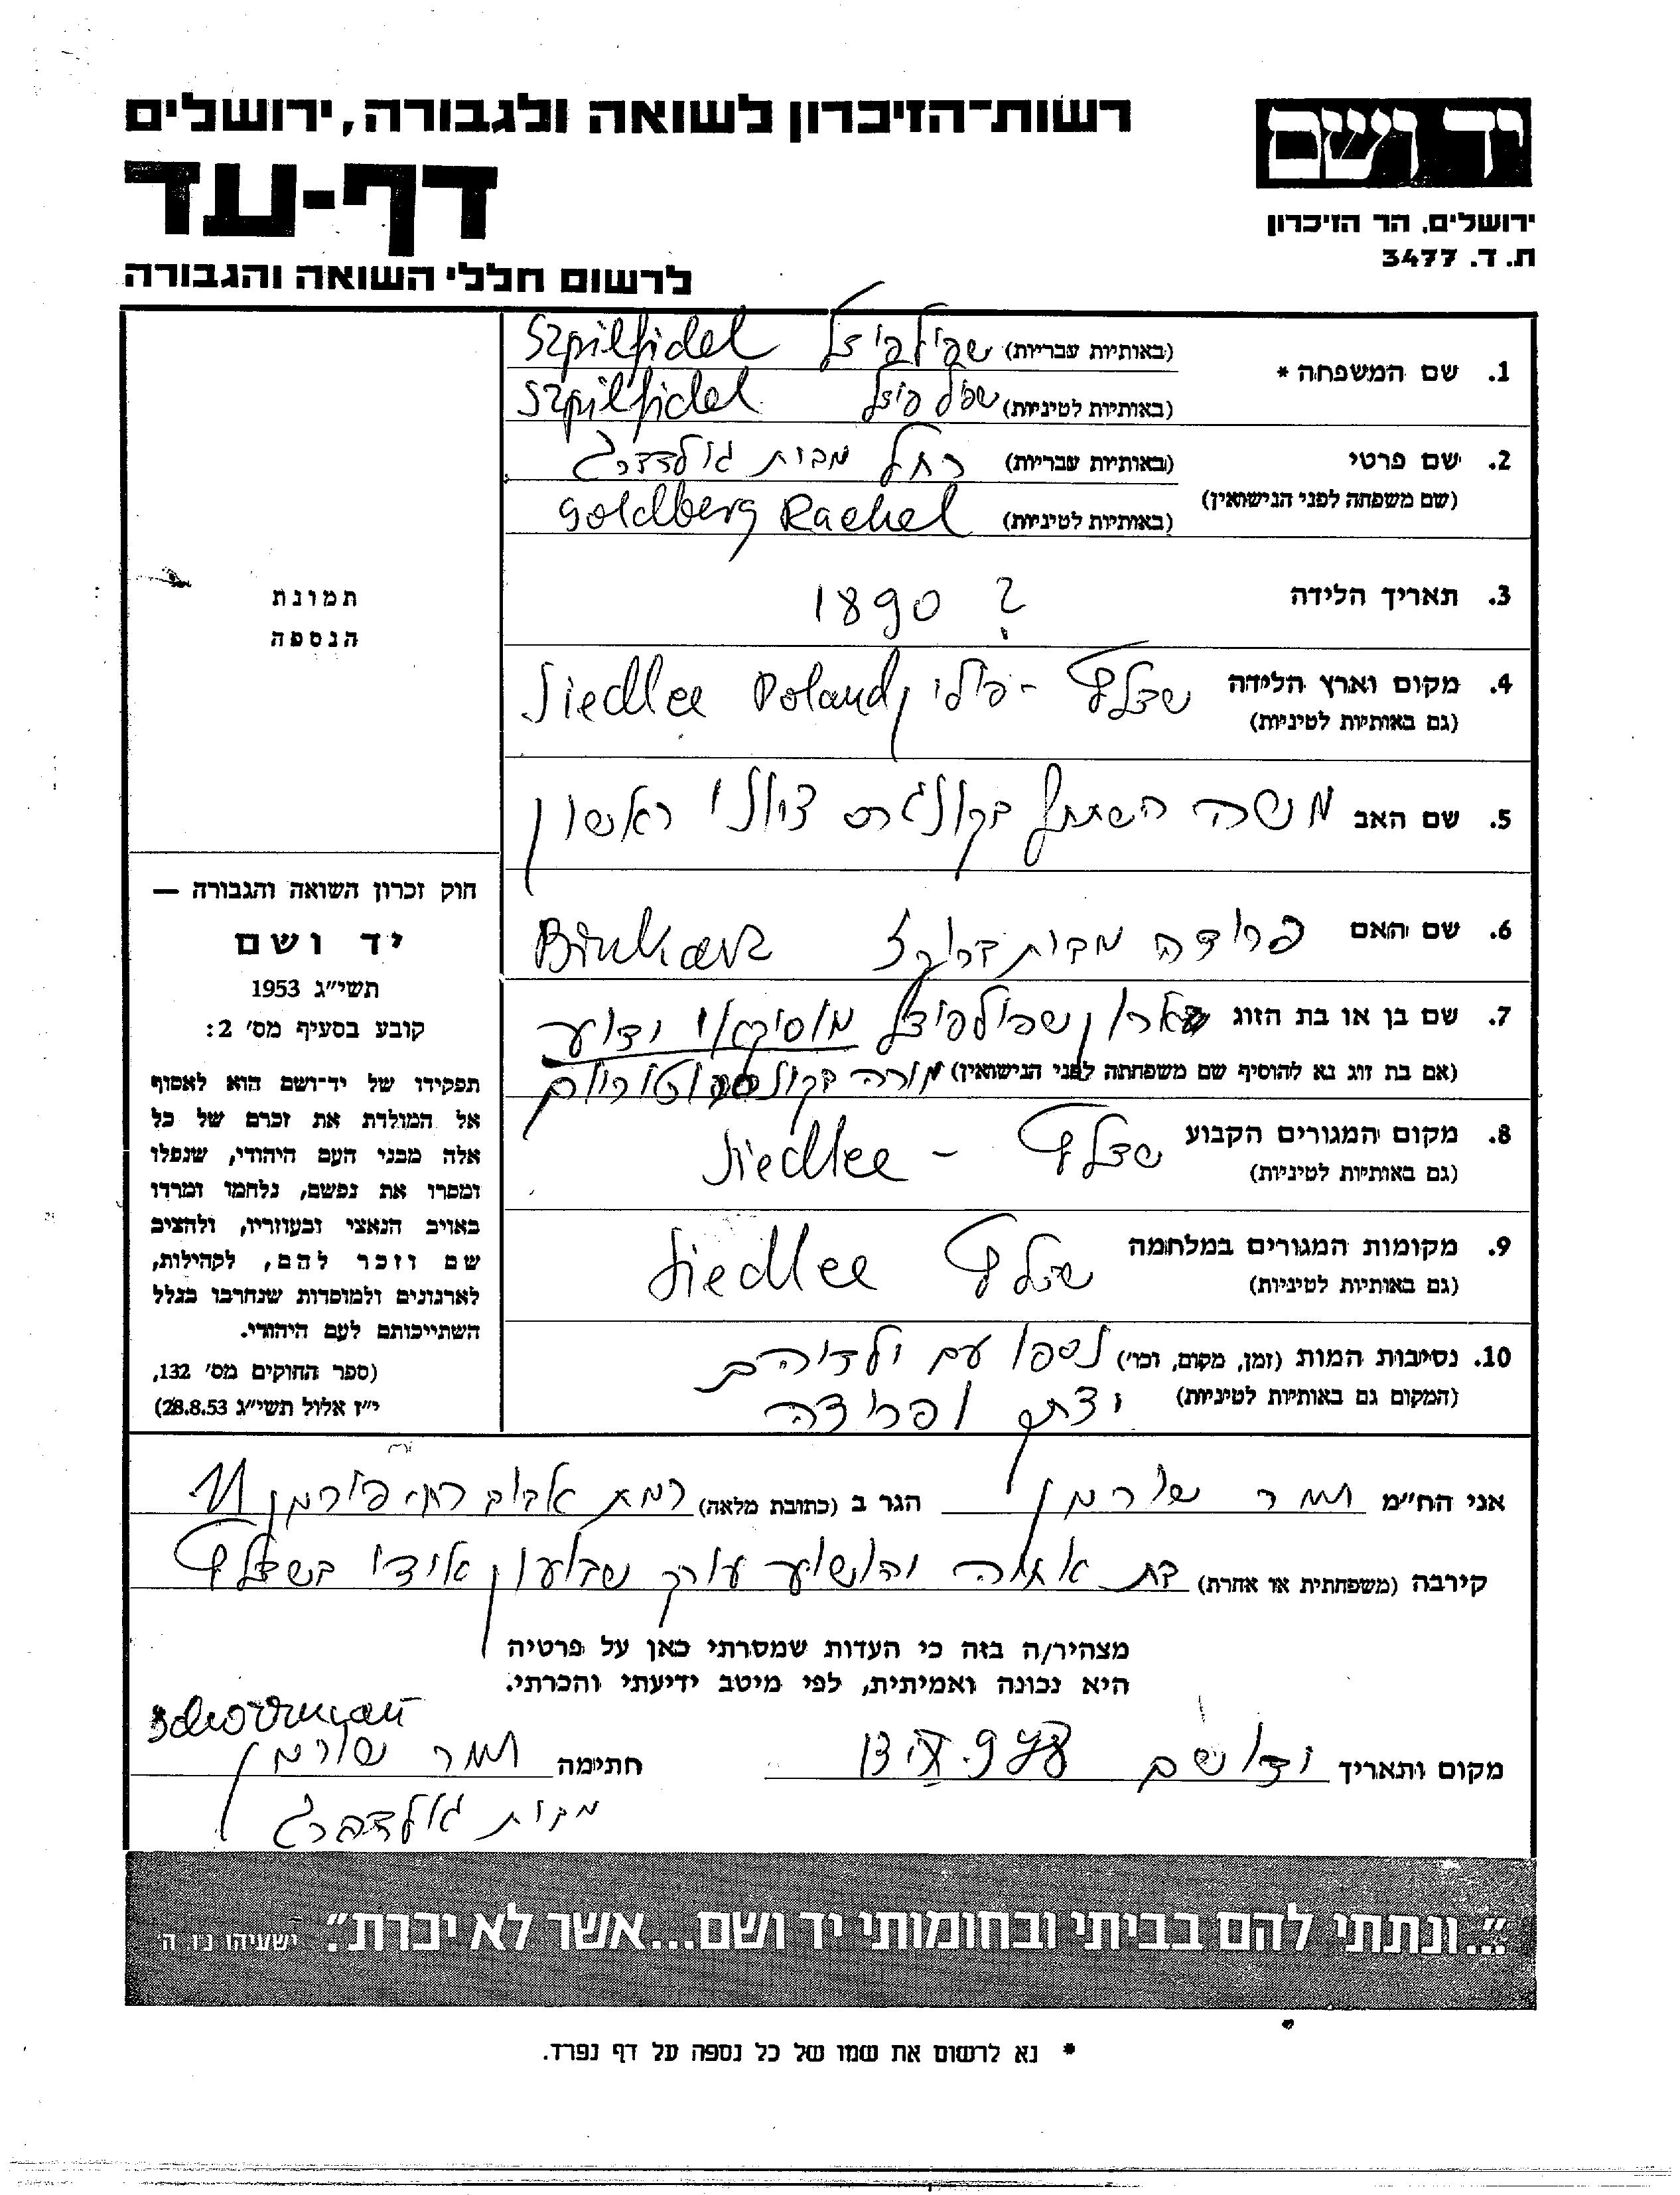 רשות־הזיכרון לשואה ולגבורה, ירושלים
דף-עד
לרשום חללי השואה והגבורה
יד ושם
ירושלים. הר הזיכרון
ת. ד. 3477
1. שם המשפחה * (באותיות עבריות) שפילפידל Szpilfidel
(באותיות לטיניות) שפילפידל Szpilfidel
2. שם פרטי (באותיות עבריות) רחל מבית גולדברג
(שם משפחה לפני הנישואין) (באותיות לטיניות) Goldberg Rachel
3. תאריך הלידה ? 1890
4. מקום וארץ הלידה שדלץ - פולין Siedlce Poland
(גם באותיות לטיניות)
5. שם האב משה השתתף בקונגרס ציוני ראשון
6. שם האם פרידה מבית
7. שם בן או בת הזוג אהרון שפילפידל מוסיקאי ידוע
(אם בת זוג נא להוסיף שם משפחתה לפני הנישואין) מורה
8. מקום המגורים הקבוע שדלץ - Siedlce
(גם באותיות לטיניות)
9. מקומות המגורים במלחמה שדלץ Siedlce
(גם באותיות לטיניות)
10. נסיבות המות (זמן, מקום, וכו') נספו עם ילדיהם
(המקום גם באותיות לטיניות) ופרידה
תמונת
הנספה
חוק זכרון השואה והגבורה —
יד ושם
תשי״ג 1953
קובע בסעיף מס׳ 2:
תפקידו של יד־ושם הוא לאסוף
אל המולדת את זכרם של כל
אלה מבני העם היהודי, שנפלו
ומסרו את נפשם, נלחמו ומרדו
באויב הנאצי ובעוזריו, ולהציב
שם וזכר להם, לקהילות,
לארגונים ולמוסדות שנחרבו בגלל
השתייכותם לעם היהודי.
(ספר החוקים מס׳ 132,
י״ז אלול תשי״ג 28.8.53)
אני הח״מ תמר שורמן הגר ב (כתובת מלאה) רמת אביב 11
קירבה (משפחתית או אחרת) בת אחיה עורך שבועון אידי בשדלץ
מצהיר/ה בזה כי העדות שמסרתי כאן על פרטיה
היא נכונה ואמיתית, לפי מיטב ידיעתי והכרתי.
מקום ותאריך יד ושם חתימה תמר שורמן
מבית גולדברג
״...ונתתי להם בביתי ובחומותי יד ושם...אשר לא יכרת״. ישעיהו נ״ו. ה׳
* נא לרשום את שמו של כל נספה על דף נפרד.